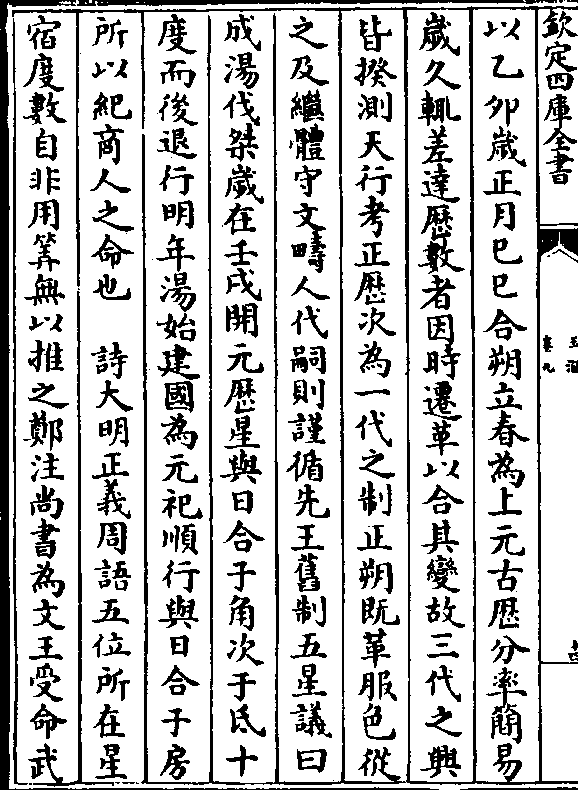 欽定四庫全書
玉海
卷九
以乙卯歲正月巳巳合朔立春為上元古歴分率簡易
歲久輒差達歴數者因時遷革以合其變故三代之興
皆揆測天行考正歴次為一代之制正朔既革服色從
之及繼體守文疇人代嗣則謹循先王舊制五星議曰
成湯伐桀歲在壬戌開元歴星與日合于角次于氐十
度而後退行明年湯始建國為元祀順行與日合于房
所以紀商人之命也　詩大明正義周語五位所在星
宿度數自非用筭無以推之鄭注尚書為文王受命武